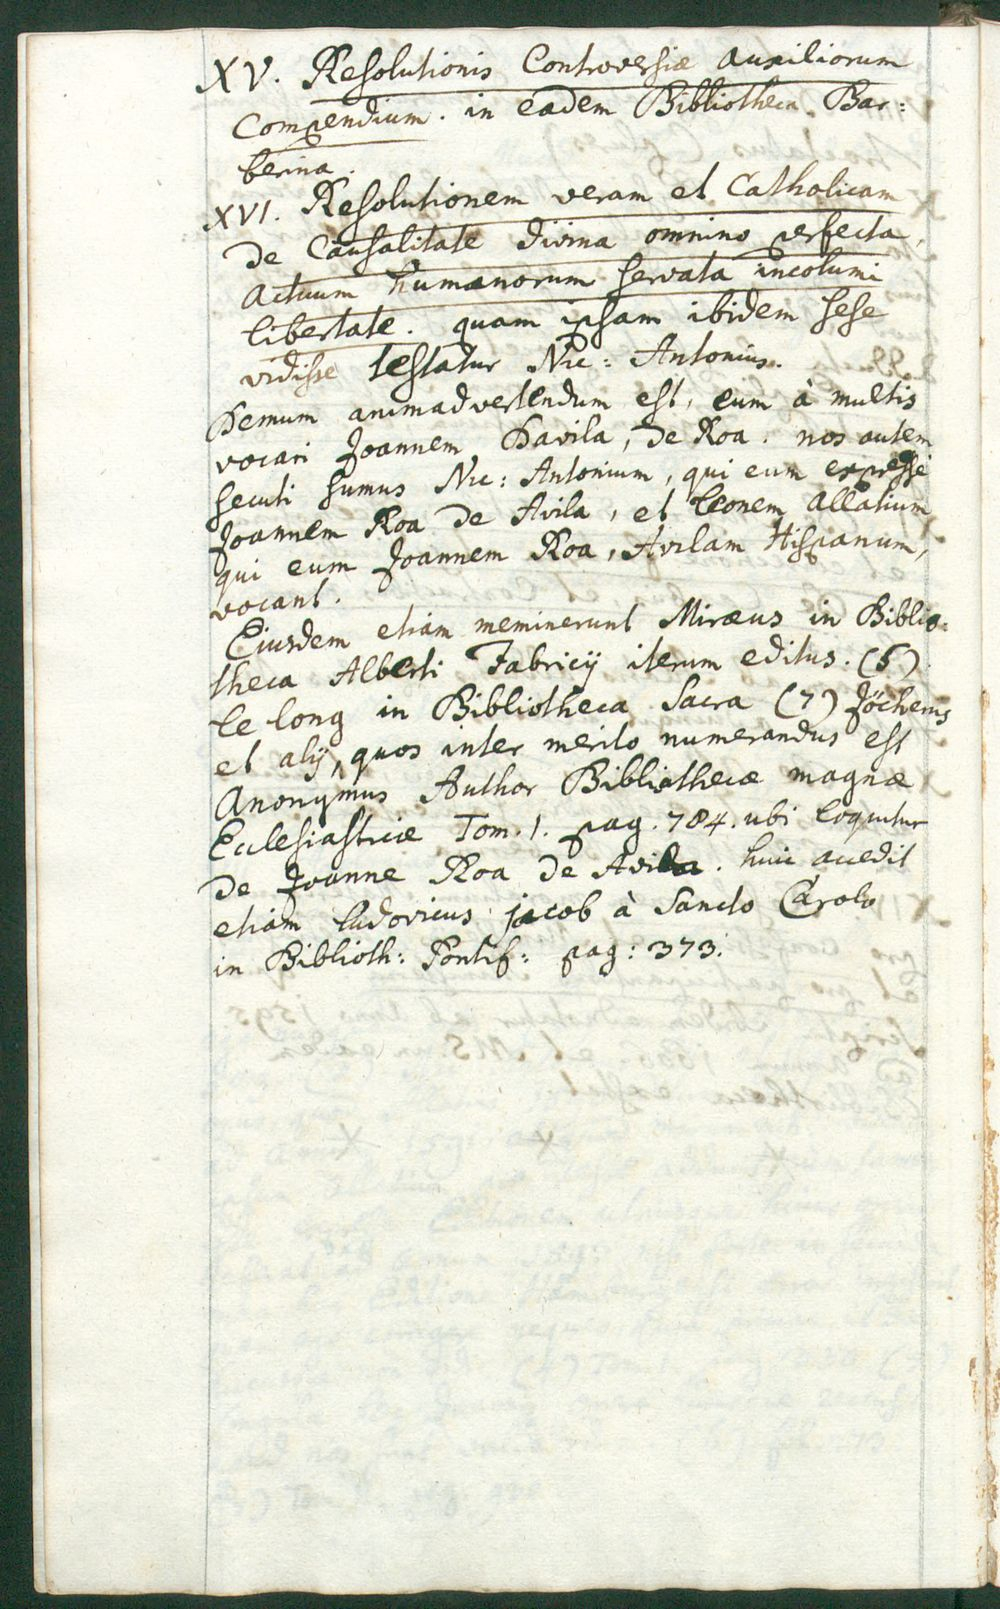 XV. Resolutionis Controversiæ Auxiliorum
Compendium. in eadem Bibliotheca Bar:
berina.
XVI. Resolutionem veram et Catholicam
de Causalitate divina omnino perfecta,
Actuum humanorum servata incolumi
libertate. quam ipsam ibidem sese
vidisse testatur Nic: Antonius.
Demum animadvertendum est, eum à multis
vocari Joannem Davila, de Roa. nos autem
secuti sumus Nic: Antonium, qui eum expresse
Joannem Roa de Avila, et Leonem Allatium
qui eum Joannem Roa, Avilam Hispanum,
vocant.
Eiusdem etiam meminerunt Miræus in Biblio:
theca Alberti Fabricij iterum editus. (6)
le long in Bibliotheca Sacra (7) Jöcherus
et alij, quos inter merito numerandus est
Anonymus Author Bibliothecæ magnæ
Ecclesiasticæ Tom. 1. pag. 784. ubi loquitur
de Joanne Roa de Avila. huic accedit
etiam ludovicus jacob à Sancto Carolo
in Biblioth: Pontif: pag: 373.